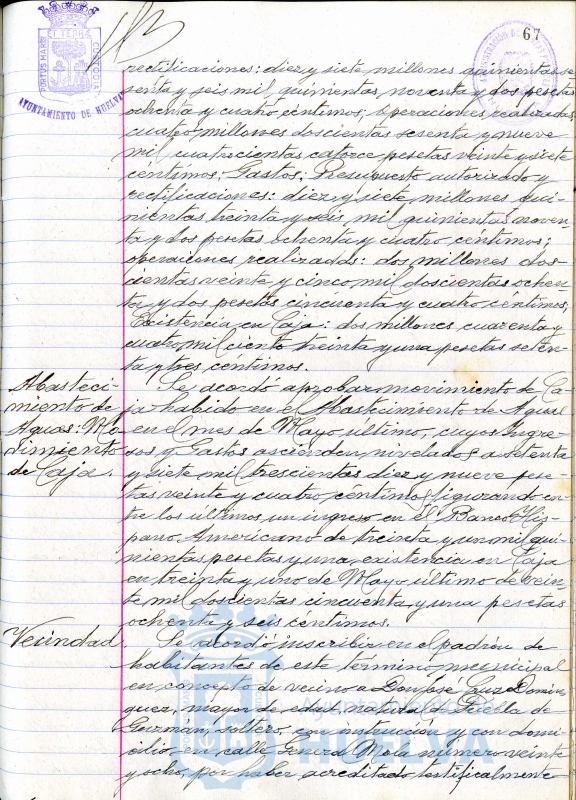 67
PORTUS MARIS ET TERRÆ CUSTODIA
AYUNTAMIENTO DE HUELVA
rectificaciones: diez y siete millones quinientas se-
senta y seis mil, quinientas noventa y dos pesetas
ochenta y cuatro céntimos; operaciones realizadas
cuatro millones doscientas sesenta y nueve
mil cuatrocientas catorce pesetas veinte y siete
céntimos; Gastos: Presupuesto autorizado y
rectificaciones: diez y siete millones qui-
nientas treinta y seis mil quinientas noven-
ta y dos pesetas ochenta y cuatro céntimos;
operaciones realizadas: dos millones dos-
cientas veinte y cinco mil doscientas ochen-
ta y dos pesetas cincuenta y cuatro céntimos;
Existencia en Caja: dos millones cuarenta y
cuatro mil ciento treinta y una pesetas seten-
ta y tres céntimos.
Abasteci-
miento de
Aguas: Mo-
vimiento
de Caja.
Se acordó aprobar movimiento de Ca-
ja habido en el Abastecimiento de Aguas
en el mes de Mayo último, cuyos Ingre-
sos y Gastos ascienden, nivelados, a setenta
y siete mil trescientas diez y nueve pese-
tas veinte y cuatro céntimos, figurando en-
tre los últimos un ingreso en el Banco His-
pano Americano de treinta y un mil qui-
nientas pesetas y una existencia en Caja
en treinta y uno de Mayo último de vein-
te mil doscientas cincuenta y una pesetas
ochenta y seis céntimos.
Vecindad.
Se acordó inscribir en el padrón de
habitantes de este término municipal
en concepto de vecino a Don José Luz Domín-
guez, mayor de edad, natural de Puebla de
Guzmán, soltero, con instrucción y con domi-
cilio en calle General Mola número veinte
y ocho, por haber acreditado testificalmente